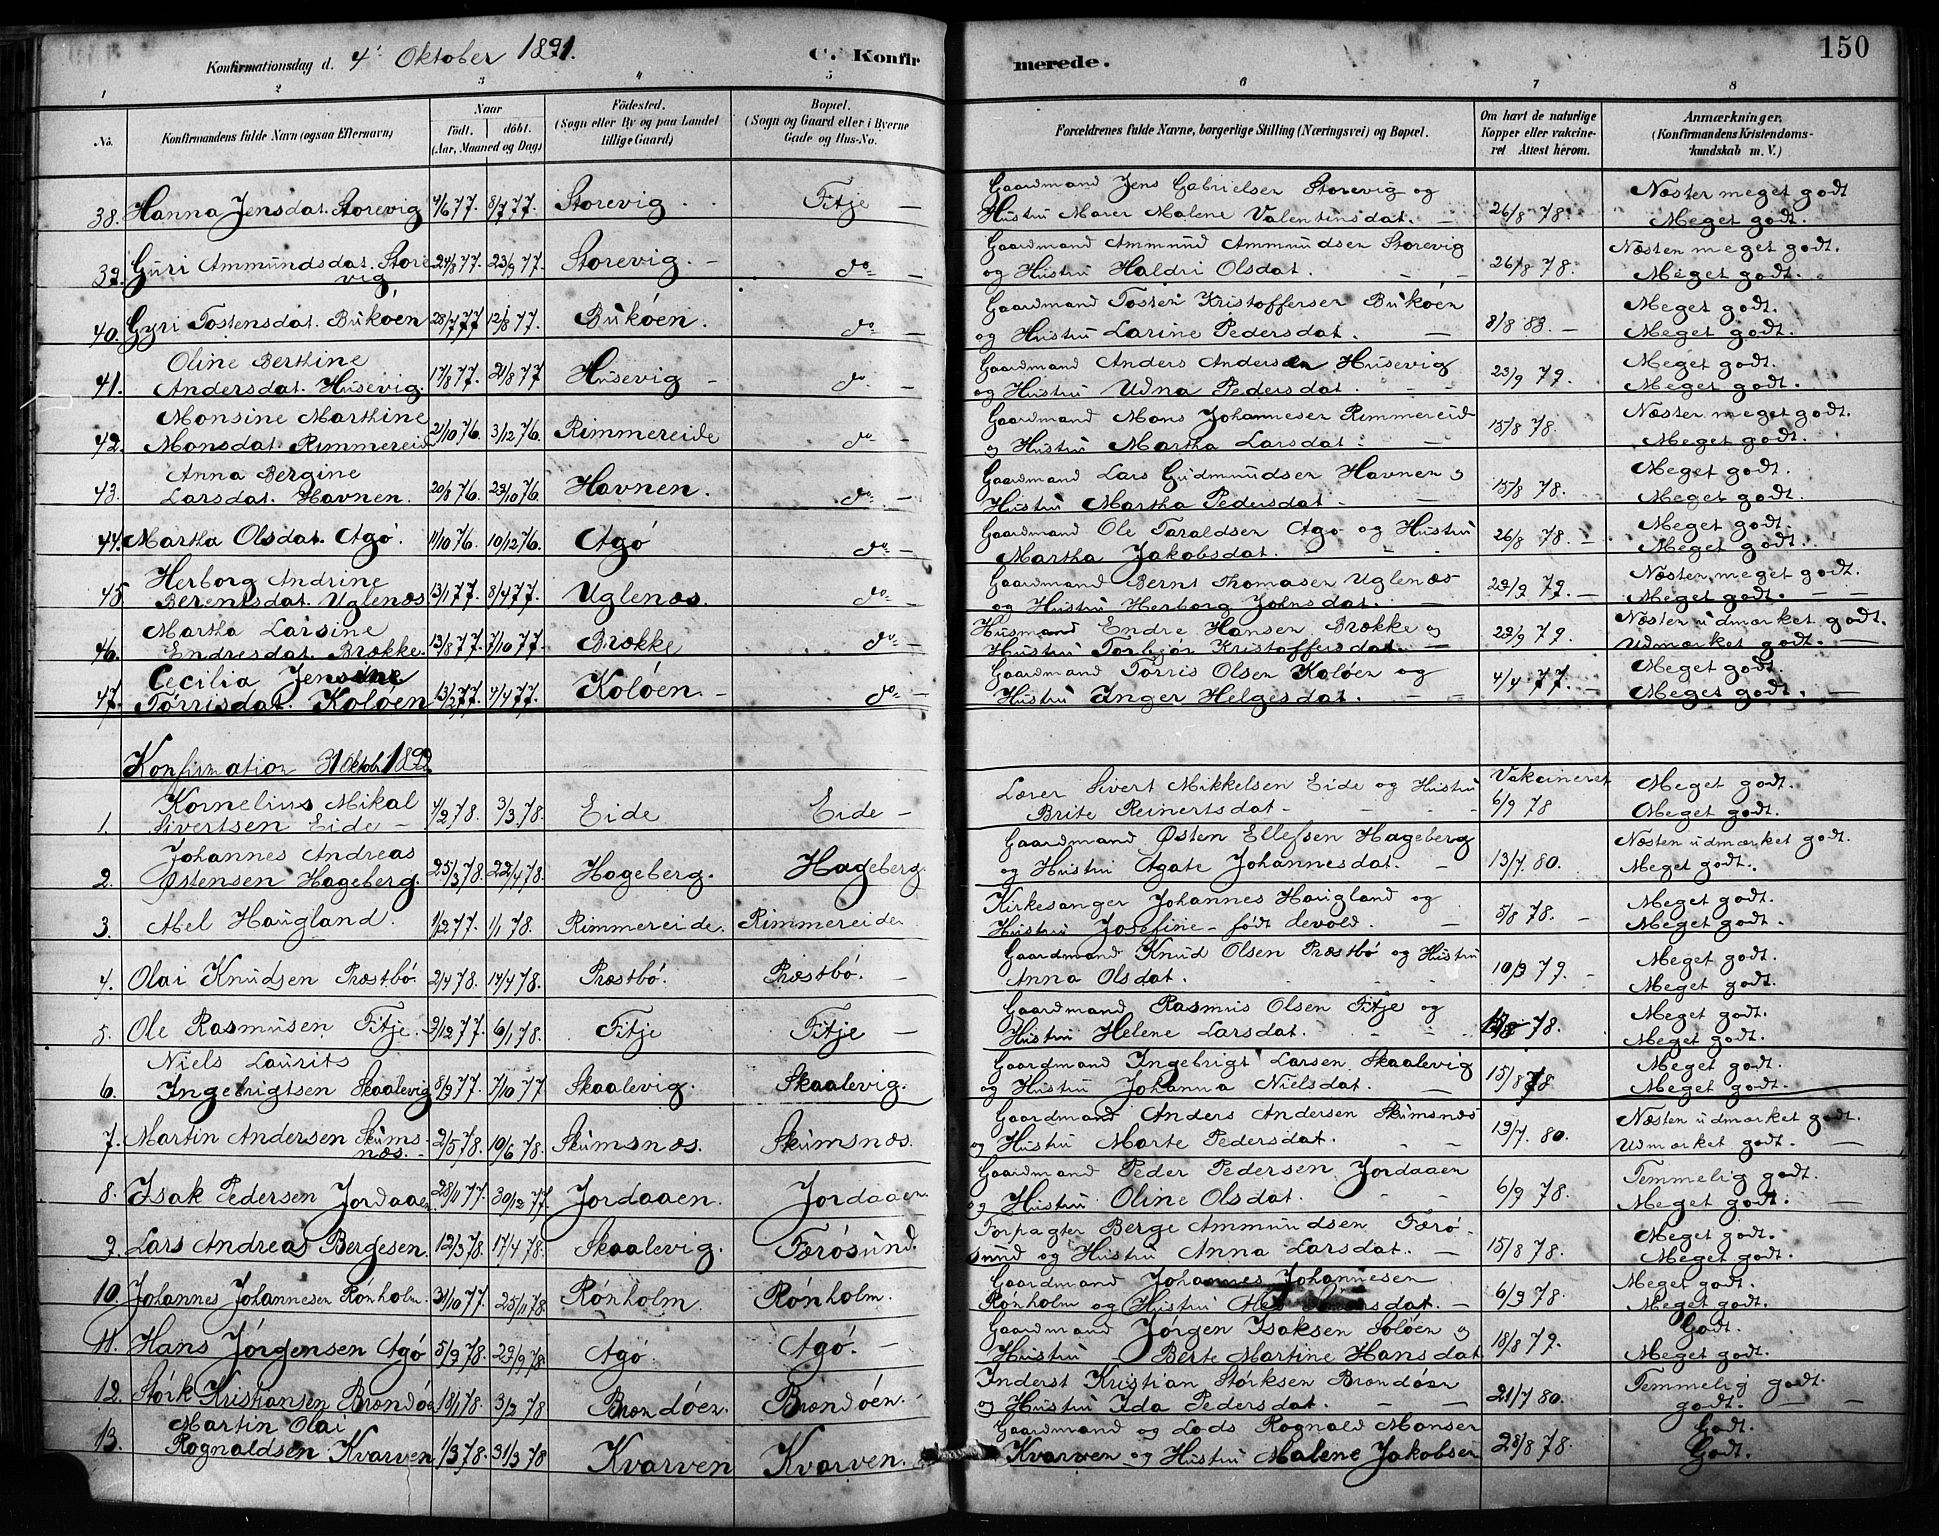 Konfirmationsdag d. 4' Oktober 1891. C. Konfirmerede. 150
1 2 3 4 5 6 7 8
No. Konfirmandens fulde Navn (ogsaa Efternavn) Naar födt. döbt. (Aar, Maaned og Dag) Födested. (Sogn eller By og paa Landet tillige Gaard) Bopæl. (Sogn og Gaard eller i Byerne Gade og Hus-No. Forældrenes fulde Navne, borgerlige Stilling (Næringsvei) og Bopæl. Om havt de naturlige Kopper eller vakcineret Attest herom. Anmærkninger, (Konfirmandens Kristendomskundskab m. V.)
Gaardmand Jens Gabrielsen Storevig og Næsten meget godt
38. Hanna Jensdat. Storevig 4/6 77. 8/7 77. Storevig. Fitje Hustru Maren Malene Valentinsdat. 26/8 78. Meget godt.
Gaardmand Ammund Ammundsen Storevig Næsten meget godt.
39. Guri Ammundsdat. Storevig 24/8 77. 23/9 77. Storevig. do og Hustru Haldri Olsdat. 26/8 78. Meget godt.
Gaardmand Tosten Kristoffersen Bukøen Meget godt.
40. Gyri Tostensdat. Bukøen 28/7 77 12/8 77. Bukøen. do og Hustru Larine Pedersdat. 8/8 83. Meget godt.
Oline Berthine Gaardmand Anders Andersen Husevig Meget godt.
41. Andersdat. Husevig 17/8 77. 21/8 77 Husevig do og Hustru Udna Pedersdat. 23/9 79. Meget godt.
Monsine Marthine Gaardmand Mons Johannesen Rimmereid Næsten meget godt.
42. Monsdat. Rimmereid 21/10 76. 3/12 76. Rimmereide do og Hustru Martha Larsdat. 15/8 78. Meget godt.
Anna Bergine Gaardmand Lars Gudmundsen Havnen og Meget godt.
43. Larsdat. Havnen. 20/8 76. 23/10 76. Havnen. do Hustru Martha Pedersdat. 15/8 78. Meget godt.
Gaardmand Ole Taraldsen Agø og Hustru Meget godt.
44. Martha Olsdat. Agø. 11/10 76. 10/12 76. Agø do Martha Jakobsdat. 26/8 78. Meget godt.
Herborg Andrine Gaardmand Bernt Thomasen Uglenæs Næsten meget godt.
45. Berentsdat. Uglenæs 13/1 77. 8/4 77. Uglenæs. do og Hustru Herborg Johnsdat. 23/9 79. Meget godt.
Martha Larsine Husmand Endre Hansen Brække og Næsten udmærket godt.
46. Endresdat. Brække. 13/8 77. 7/10 77. Brække do Hustru Torbjør Kristoffersdat. 23/9 79. Udmærket godt.
Cecilia Jensine Gaardmand Tørris Olsen Koløen og Meget godt.
47. Tørrisdat. Koløen 13/2 77. 4/4 77. Koløen. do Hustru Inger Helgesdat. 4/4 77. Meget godt.
Konfirmation 31 Oktobr 1892.
Kornelius Mikal Lærer Sivert Mikkelsen Eide og Hustru Vakcineret Meget godt.
1. Sivertsen Eide 4/2 78. 3/3 78. Eide Eide Brite Reinertsdat 6/9 78 Meget godt.
Johannes Andreas Gaardmand Østen Ellefsen Hageberg Næsten udmærket godt.
2. Østensen Hageberg. 25/3 78. 22/4 78. Hageberg. Hageberg. og Hustru Agate Johannesdat. 13/7 80. Meget godt.
Kirkesanger Johannes Haugland og Meget godt.
3. Abel Haugland. 1/12 77. 1/1 78. Rimmereide. Rimmereide Hustru Josefine født devold. 5/8 78. Meget godt.
Gaardmand Knud Olsen Præstbø og Hustru Meget godt.
4. Olai Knudsen Præstbø. 2/4 78. 14/4 78. Præstbø. Præstbø. Anna Olsdat. 10/3 79. Meget godt.
Gaardmand Rasmus Olsen Fitje og Meget godt.
5. Ole Rasmusen Fitje. 9/12 77. 6/1 78. Fitje Fitje Hustru Helene Larsdat. 78. Meget godt.
Niels Laurits Gaardmand Ingebrigt Larsen Skaalevig Meget godt.
6. Ingebrigtsen Skaalevig 8/9 77. 7/10 77 Skaalevig. Skaalevig. og Hustru Johanna Nielsdat. 15/8 78. Meget godt.
Gaardmand Anders Andersen Skumsnæs Næsten udmærket godt.
7. Martin Andersen Skumsnæs. 2/5 78. 10/6 78. Skumsnæs. Skumsnæs. og Hustru Marte Pedersdat. 13/7 80. Udmærket godt.
Gaardmand Peder Pedersen Jordaaen Temmelig godt
8. Isak Pedersen Jordaaen 28/11 77. 30/12 77. Jordaaen. Jordaaen. og Hustru Oline Olsdat. 6/9 78. Meget godt.
Forpagter Berge Ammundsen Færø- Meget godt.
9. Lars Andreas Bergesen. 12/3 78. 17/4 78. Skaalevig. Færøsund. sund og Hustru Anna Larsdat. 15/8 78. Meget godt.
Gaardmand Johannes Johannesen Meget godt.
10. Johannes Johannesen Rønholm. 31/10 77. 25/11 78. Rønholm. Rønholm. Rønholm og Hustru 6/9 78. Meget godt.
Gaardmand Jørgen Isaksen Soløen og Godt.
11. Hans Jørgensen Agø 5/9 78. 29/9 78. Agø. Agø. Hustru Berte Martine Hansdat 18/8 79. Meget godt.
Inderst Kristian Størksen Brandøen Temmelig godt.
12. Størk Kristiansen Brandøe 18/1 78. 3/2 78 Brandøen. Brandøen. og Hustru Ida Pedersdat. 21/7 80. godt.
Martin Olai Gaardmand og Lods Rognald Monsen Godt.
13. Rognaldsen Kvarven 1/3 78. 31/3 78 Kvarven Kvarven. Kvarven og Hustru Malene Jakobsen 28/8 78. Godt.